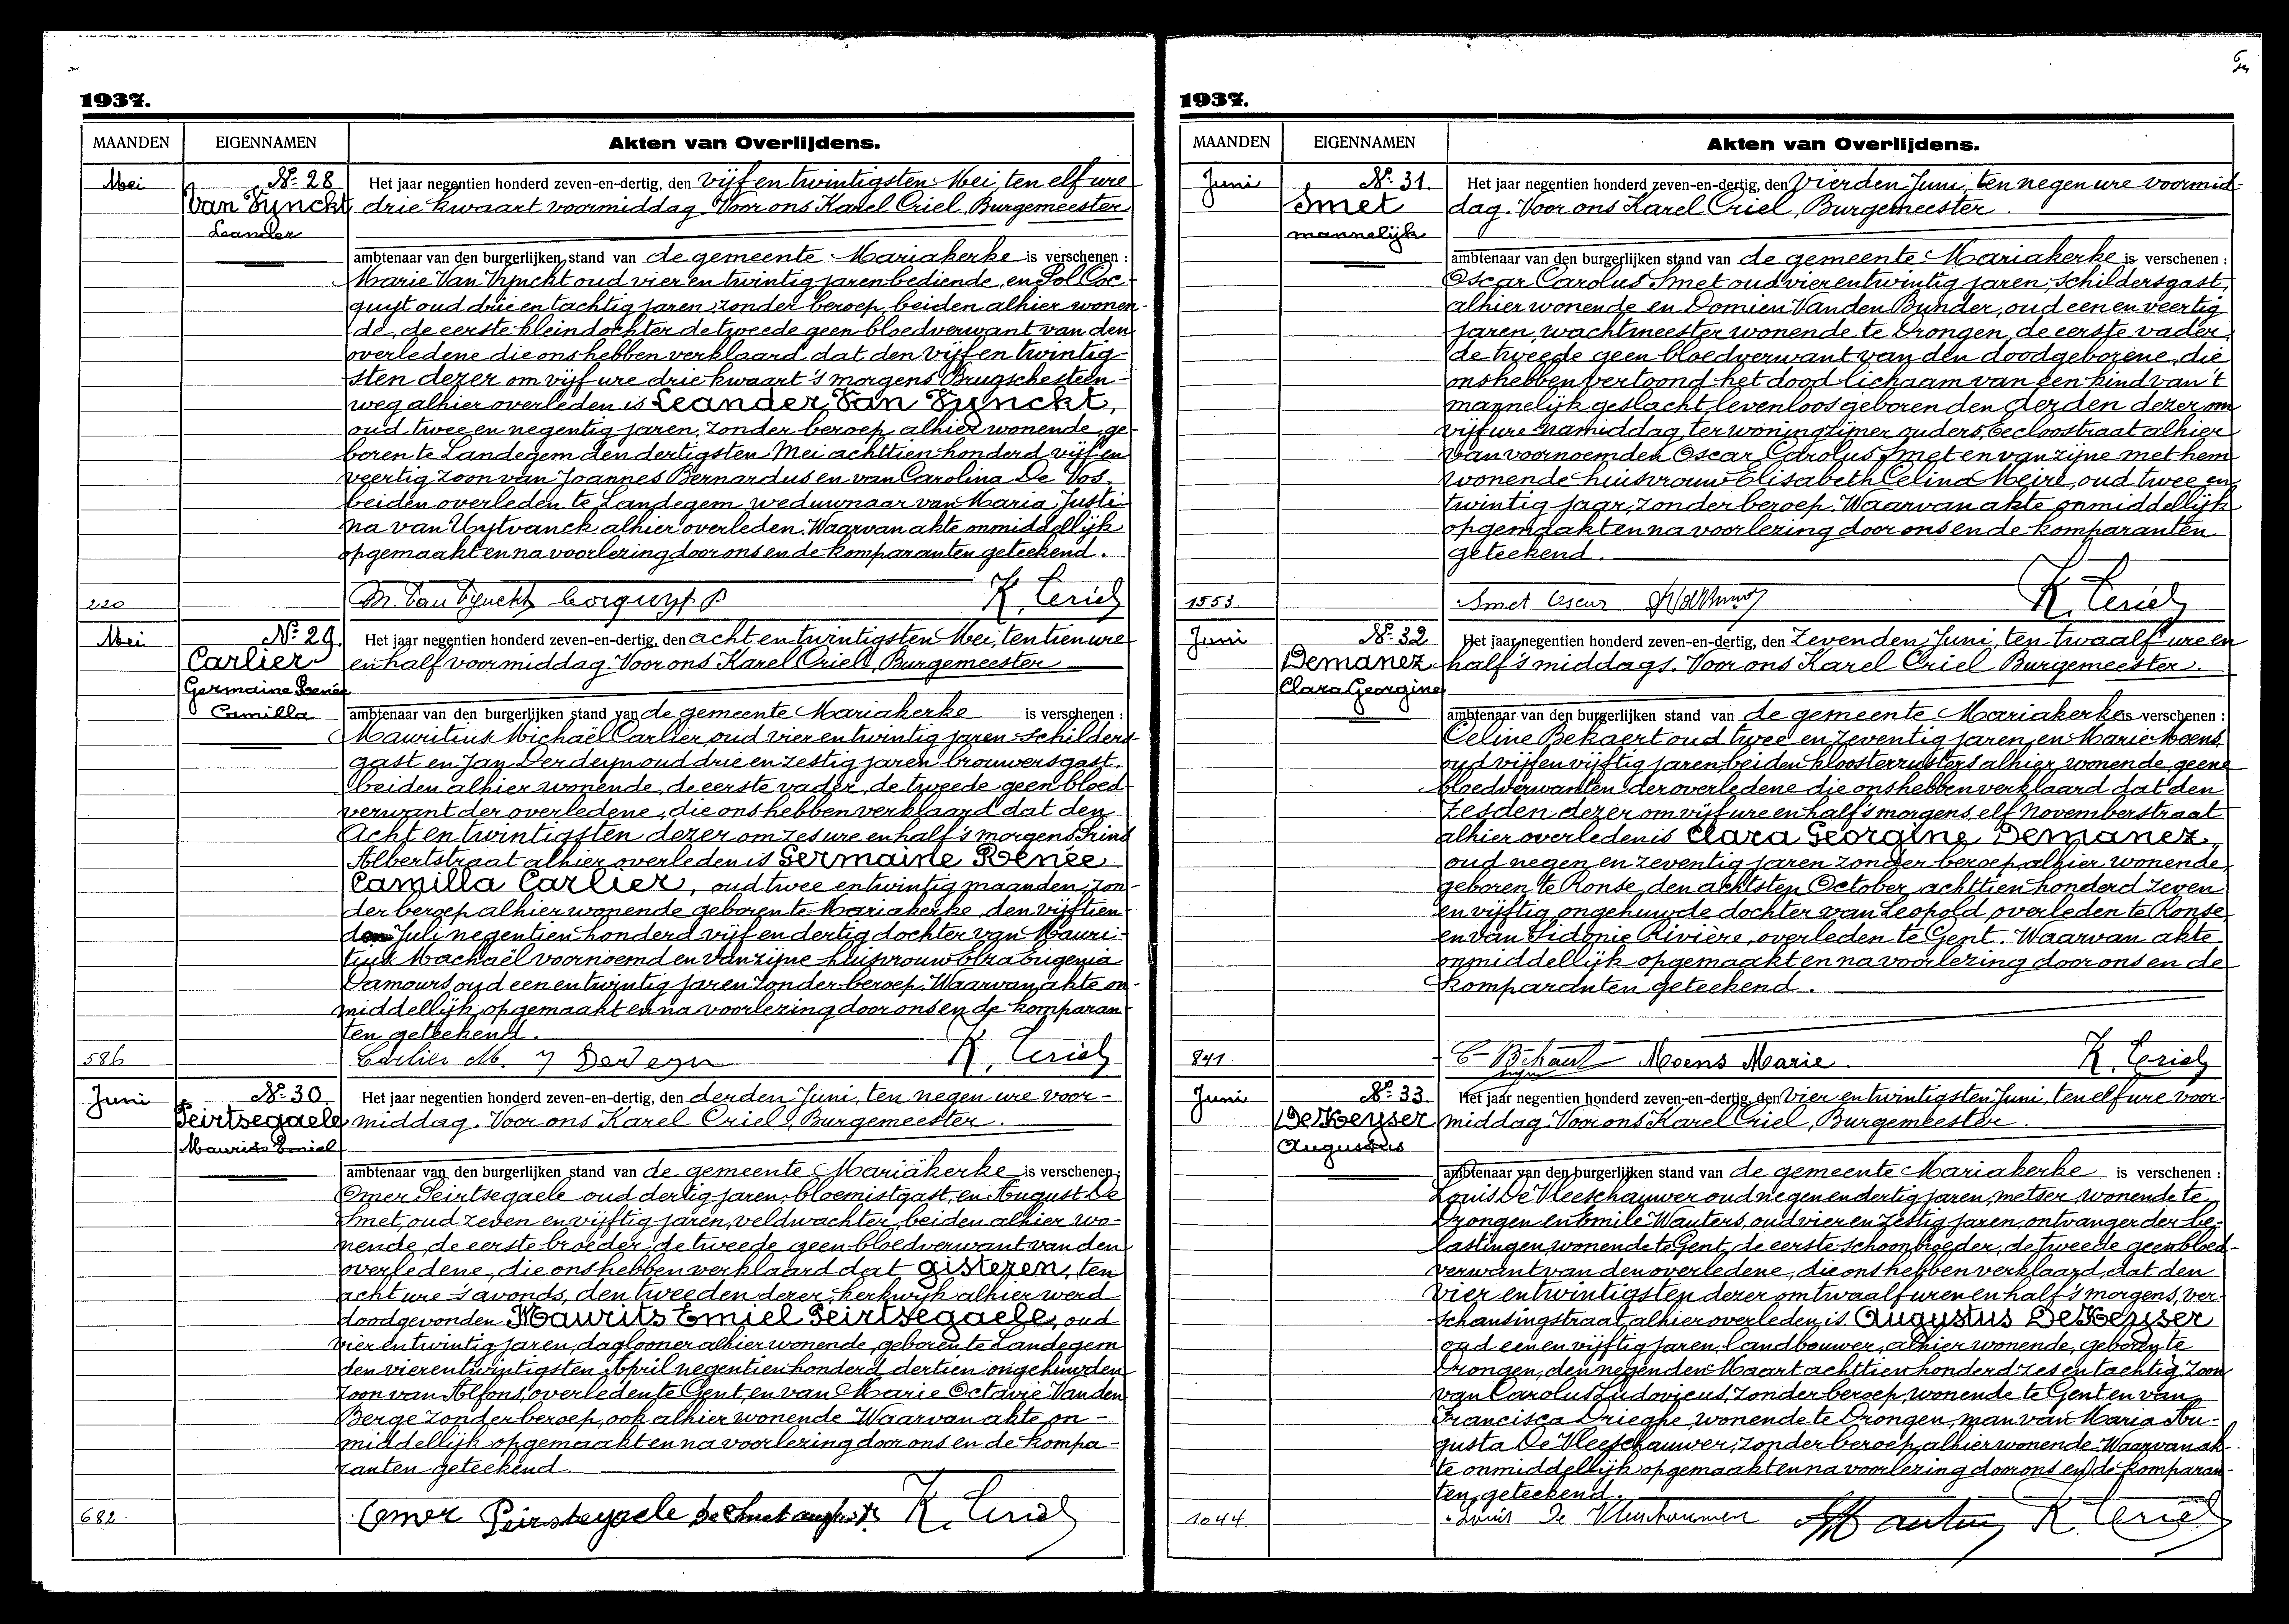 1937.
MAANDEN EIGENNAMEN Akten van Overlijdens.
Mei
Nº 28
Van Vynckt
Leander
220
Het jaar negentien honderd zeven-en-dertig, den vijf en twintigsten Mei, ten elf ure
drie kwaart voormiddag. Voor ons Karel Criel, Burgemeester
ambtenaar van den burgerlijken stand van de gemeente Mariakerke is verschenen :
Marie Van Vynckt oud vier en twintig jaren bediende, en Pol Coc-
quyt oud drie en tachtig jaren, zonder beroep, beiden alhier wonen-
de, de eerste kleindochter de tweede geen bloedverwant van den
overledene die ons hebben verklaard dat den vijf en twintig-
sten dezer om vijf ure drie kwaart 's morgens Brugschesteen-
weg alhier overleden is Leander Van Vynckt,
oud twee en negentig jaren, zonder beroep, alhier wonende, ge-
boren te Landegem den dertigsten Mei achttien honderd vijf en
veertig zoon van Joannes Bernardus en van Carolina De Vos
beiden overleden te Landegem, weduwnaar van Maria Justi-
na van Uytvanck alhier overleden. Waarvan akte onmiddellijk
opgemaakt en na voorlezing door ons en de komparanten geteekend.
M. Van Vynckt Cocquyt P K. Criel
Mei
Nº 29.
Carlier
Germaine Renée
Camilla
586
Het jaar negentien honderd zeven-en-dertig, den acht en twintigsten Mei, ten tien ure
en half voormiddag. Voor ons Karel Criel, Burgemeester
ambtenaar van den burgerlijken stand van de gemeente Mariakerke is verschenen :
Mauritius Michaël Carlier, oud vier en twintig jaren schilders-
gast en Jan Derdeyn oud drie en zestig jaren brouwersgast,
beiden alhier wonende, de eerste vader, de tweede geen bloed-
verwant der overledene, die ons hebben verklaard dat den
Acht en twintigsten dezer om zes ure en half 's morgens Prins
Albertstraat alhier overleden is Germaine Renée
Camilla Carlier, oud twee en twintig maanden, zon-
der beroep alhier wonende geboren te Mariakerke, den vijftien
den Juli negentien honderd vijf en dertig dochter van Mauri-
tius Machaël voornoemd en van zijne huisvrouw Elza Eugenia
Damours oud een en twintig jaren zonder beroep. Waarvan akte on-
middellijk opgemaakt en na voorlezing door ons en de komparan-
ten geteekend.
Carlier M. J Derdeyn K. Criel
Juni
Nº 30.
Peirtsegaele
Maurits Emiel
682.
Het jaar negentien honderd zeven-en-dertig, den derden Juni, ten negen ure voor-
middag. Voor ons Karel Criel, Burgemeester.
ambtenaar van den burgerlijken stand van de gemeente Mariakerke is verschenen :
Omer Peirtsegaele oud dertig jaren, bloemistgast, en August De
Smet, oud zeven en vijftig jaren, veldwachter, beiden alhier wo-
nende, de eerste broeder, de tweede geen bloedverwant van den
overledene, die ons hebben verklaard dat gisteren, ten
acht ure 's avonds, den tweeden dezer, kerkwijk alhier werd
doodgevonden Maurits Emiel Peirtsegaele, oud
vier en twintig jaren, daglooner alhier wonende, geboren te Landegem
den vier en twintigsten April negentien honderd dertien ongehuwden
zoon van Alfons, overleden te Gent, en van Marie Octavie Vanden
Berge zonder beroep, ook alhier wonende Waarvan akte on-
middellijk opgemaakt en na voorlezing door ons en de kompa-
ranten geteekend.
Omer Peirtsegaele De Smet august K. Criel
1937.
MAANDEN EIGENNAMEN Akten van Overlijdens.
Juni
Nº 31.
Smet
mannelijk
1553.
Het jaar negentien honderd zeven-en-dertig, den vierden Juni, ten negen ure voormid-
dag. Voor ons Karel Criel, Burgemeester.
ambtenaar van den burgerlijken stand van de gemeente Mariakerke is verschenen :
Oscar Carolus Smet oud vier en twintig jaren, schildersgast,
alhier wonende en Domien Vanden Bunder, oud een en veertig
jaren, wachtmeester wonende te Drongen, de eerste vader,
de tweede geen bloedverwant van den doodgeborene, die
ons hebben vertoond het dood lichaam van een kind van 't
mannelijk geslacht, levenloos geboren den derden dezer om
vijf ure namiddag ter woning zijner ouders, Eecloostraat alhier
van voornoemden Oscar Carolus Smet en van zijne met hem
wonende huisvrouw Elisabeth Celina Meire, oud twee en
twintig jaar, zonder beroep. Waarvan akte onmiddellijk
opgemaakt en na voorlezing door ons en de komparanten
geteekend.
Smet Oscar K. Criel
Juni
Nº 32
Demanez
Clara Georgine
841.
Het jaar negentien honderd zeven-en-dertig, den zevenden Juni, ten twaalf ure en
half 's middags. Voor ons Karel Criel Burgemeester.
ambtenaar van den burgerlijken stand van de gemeente Mariakerke is verschenen :
Celine Bekaert oud twee en zeventig jaren, en Marie Moens
oud vijf en vijftig jaren, beiden kloosterzusters alhier wonende, geene
bloedverwanten der overledene die ons hebben verklaard dat den
zesden dezer om vijf ure en half 's morgens, elf Novemberstraat
alhier overleden is Clara Georgine Demanez,
oud negen en zeventig jaren zonder beroep, alhier wonende,
geboren te Ronse, den achtsten October achttien honderd zeven
en vijftig ongehuwde dochter van Leopold overleden te Ronse
en van Sidonie Rivière, overleden te Gent. Waarvan akte
onmiddellijk opgemaakt en na voorlezing door ons en de
komparanten geteekend.
C Békaert Moens Marie. K. Criel
Juni
Nº 33.
De Keyser
Augustus
1044.
Het jaar negentien honderd zeven-en-dertig, den vier en twintigsten Juni, ten elf ure voor-
middag. Voor ons Karel Criel, Burgemeester.
ambtenaar van den burgerlijken stand van de gemeente Mariakerke is verschenen :
Louis De Vleeschauwer oud negen en dertig jaren, metser, wonende te
Drongen en Emile Wauters, oud vier en zestig jaren, ontvanger der be-
lastingen, wonende te Gent, de eerste schoonbroeder, de tweede geen bloed-
verwant van den overledene, die ons hebben verklaard, dat den
vier en twintigsten dezer om twaalf uren en half 's morgens, ver-
schansingstraat, alhier overleden is Augustus De Keyser
oud een en vijftig jaren, landbouwer, alhier wonende, geboren te
Drongen, den negenden Maart achttien honderd zes en tachtig zoon
van Carolus Ludovicus, zonder beroep, wonende te Gent en van
Francisca Drieghe wonende te Drongen, man van Maria Au-
gusta De Vleeschauwer, zonder beroep, alhier wonende. Waarvan ak-
te onmiddellijk opgemaakt en na voorlezing door ons en de komparan-
ten, geteekend.
Louis De Vleeschauwer Wauters K. Criel